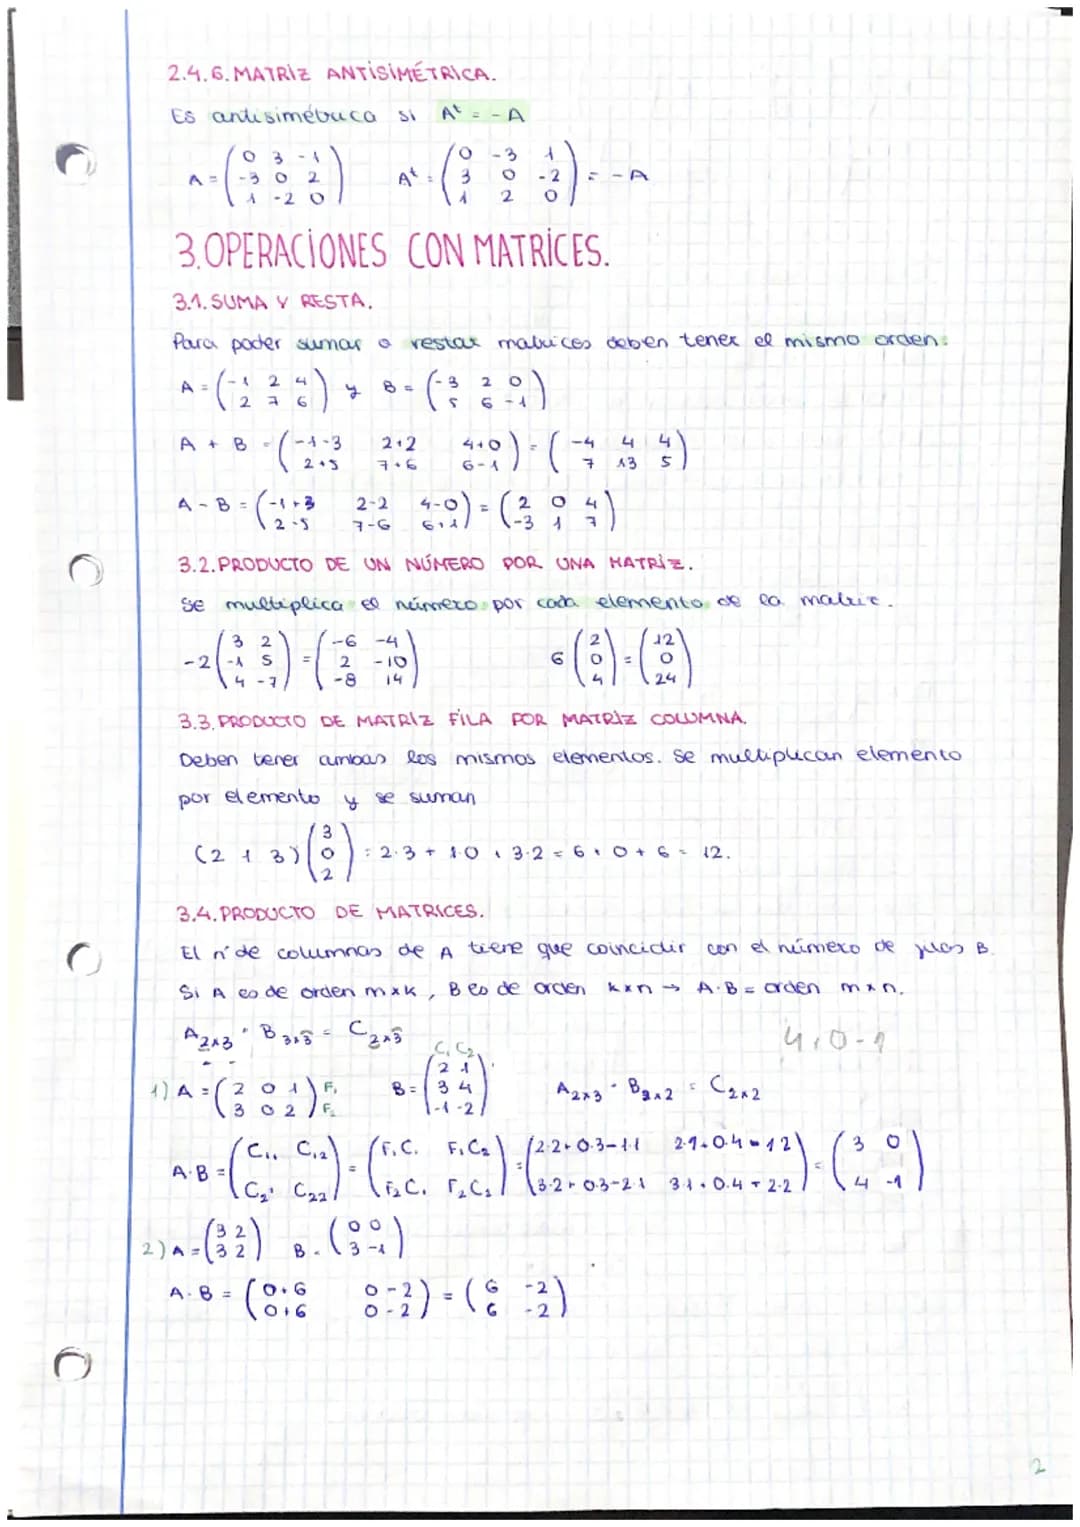 2.4.6. MATRIZ ANTISIMÉTRICA.
Es antisimétrica si A^t = - A
A = ( 0 3 -1 ; -3 0 2 ; 1 -2 0 )   A^t = ( 0 -3 1 ; 3 0 -2 ; 1 2 0 ) = - A
3. OPERACIONES CON MATRICES.
3.1. SUMA Y RESTA.
Para poder sumar o restar matrices deben tener el mismo orden:
A = ( -1 2 4 ; 2 7 6 ) y B = ( -3 2 0 ; 5 6 -1 )
A + B = ( -1-3 2+2 4+0 ; 2+5 7+6 6-1 ) = ( -4 4 4 ; 7 13 5 )
A - B = ( -1+3 2-2 4-0 ; 2-5 7-6 6+1 ) = ( 2 0 4 ; -3 1 7 )
3.2. PRODUCTO DE UN NÚMERO POR UNA MATRIZ.
Se multiplica el número por cada elemento de la matriz.
-2 ( 3 2 ; -1 5 ; 4 -7 ) = ( -6 -4 ; 2 -10 ; -8 14 )   6 ( 2 ; 0 ; 4 ) = ( 12 ; 0 ; 24 )
3.3. PRODUCTO DE MATRIZ FILA POR MATRIZ COLUMNA.
Deben tener ambas los mismos elementos. Se multiplican elemento
por elemento y se suman
(2 1 3) ( 3 ; 0 ; 2 ) = 2·3 + 1·0 + 3·2 = 6 + 0 + 6 = 12.
3.4. PRODUCTO DE MATRICES.
El nº de columnas de A tiene que coincidir con el número de filas B.
Si A es de orden mxk, B es de orden kxn → A·B = orden mxn.
A2x3 · B3x3 = C2x3
4+0-1
C1 C2
1) A = ( 2 0 1 ; 3 0 2 ) F1 F2   B = ( 2 1 ; 3 4 ; -1 -2 )   A2x3 · B3x2 = C2x2
A·B = ( C11 C12 ; C21 C22 ) = ( F1C1 F1C2 ; F2C1 F2C2 ) = ( 2·2+0·3-1·1 2·1+0·4-1·2 ; 3·2+0·3-2·1 3·1+0·4-2·2 ) = ( 3 0 ; 4 -1 )
2) A = ( 3 2 ; 3 2 )   B = ( 0 0 ; 3 -1 )
A·B = ( 0+6 0-2 ; 0+6 0-2 ) = ( 6 -2 ; 6 -2 )
2